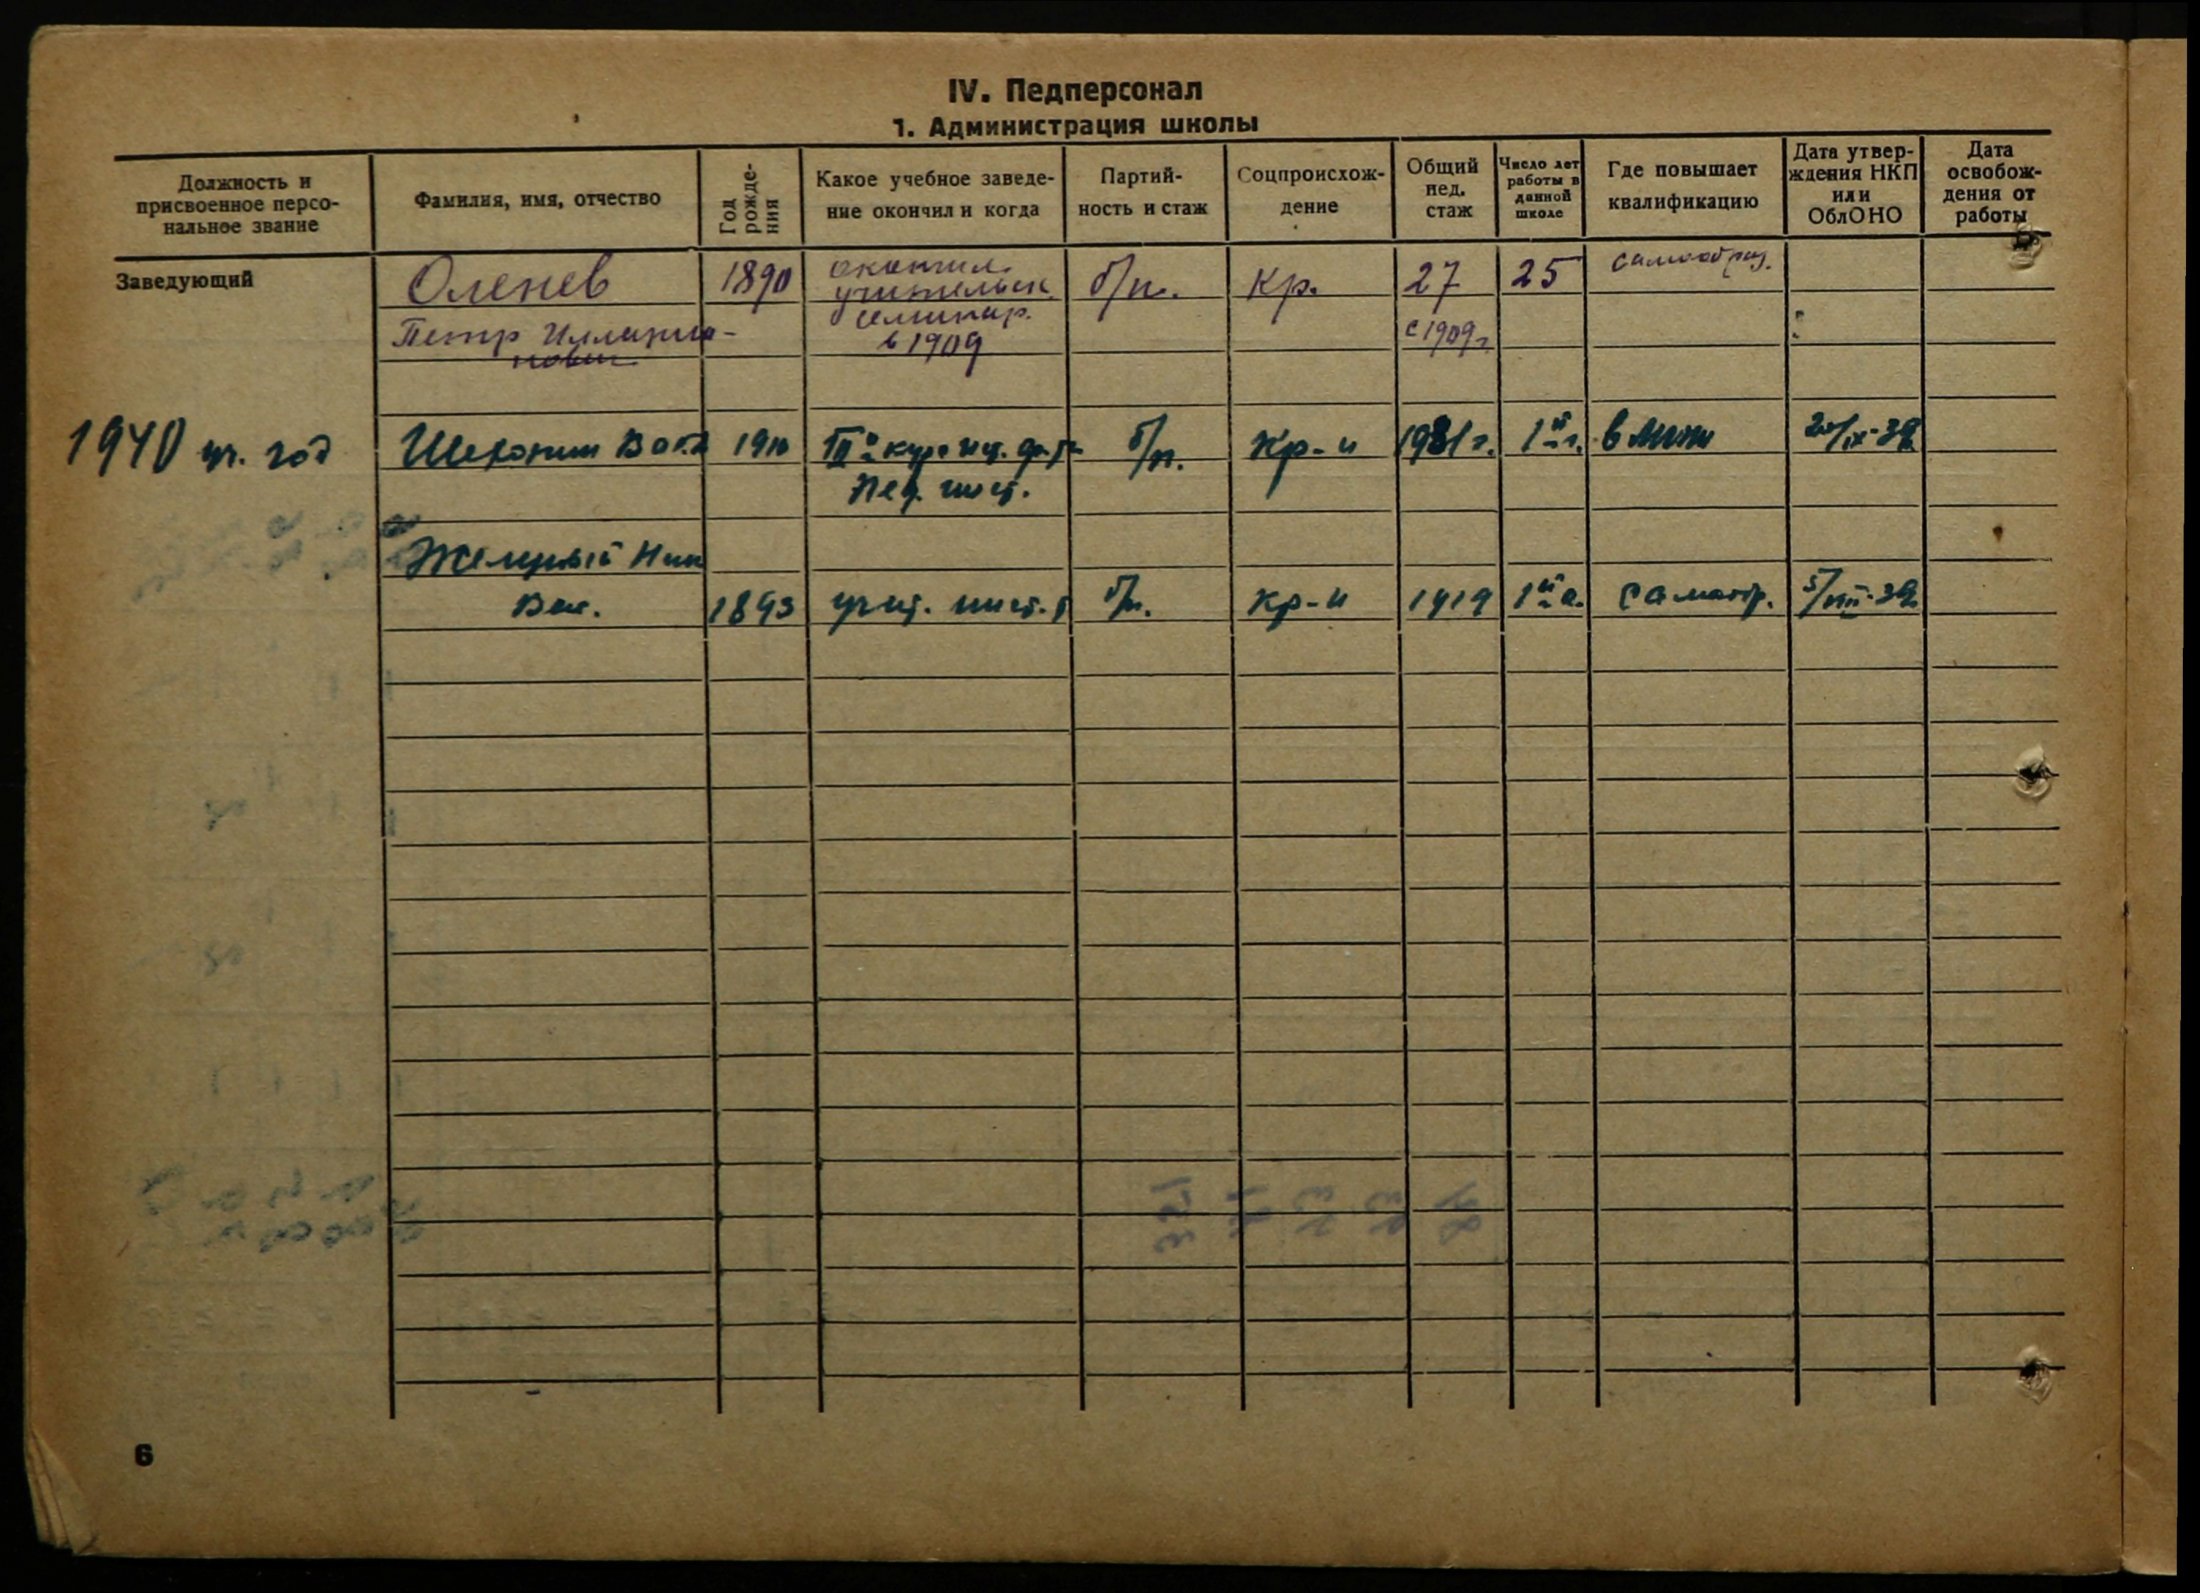 IV. Педперсонал
1. Администрация школы
Должность и присвоенное персо-нальное звание
Фамилия, имя, отчество
Год рожде-ния
Какое учебное заведе-ние окончил и когда
Партий-ность и стаж
Соцпроисхож-дение
Общий пед. стаж
Число лет работы в данной школе
Где повышает квалификацию
Дата утвер-ждения НКП или ОблОНО
Дата освобож-дения от работы
Заведующий
Оленев 1890 окончил б/п. Кр. 27 25 самообраз.
учительск.
Петр Илларио- семинар. с 1909 г.
нович в 1909
1940 уч. год
1910 III курс б/п. Кр-н 1931 г. 1й г. 20/IX-39
Пед. инст.
Ник
Вас. 1893 учит. инст. б/п. Кр-н 1919 самообр. 5/VIII-39
6